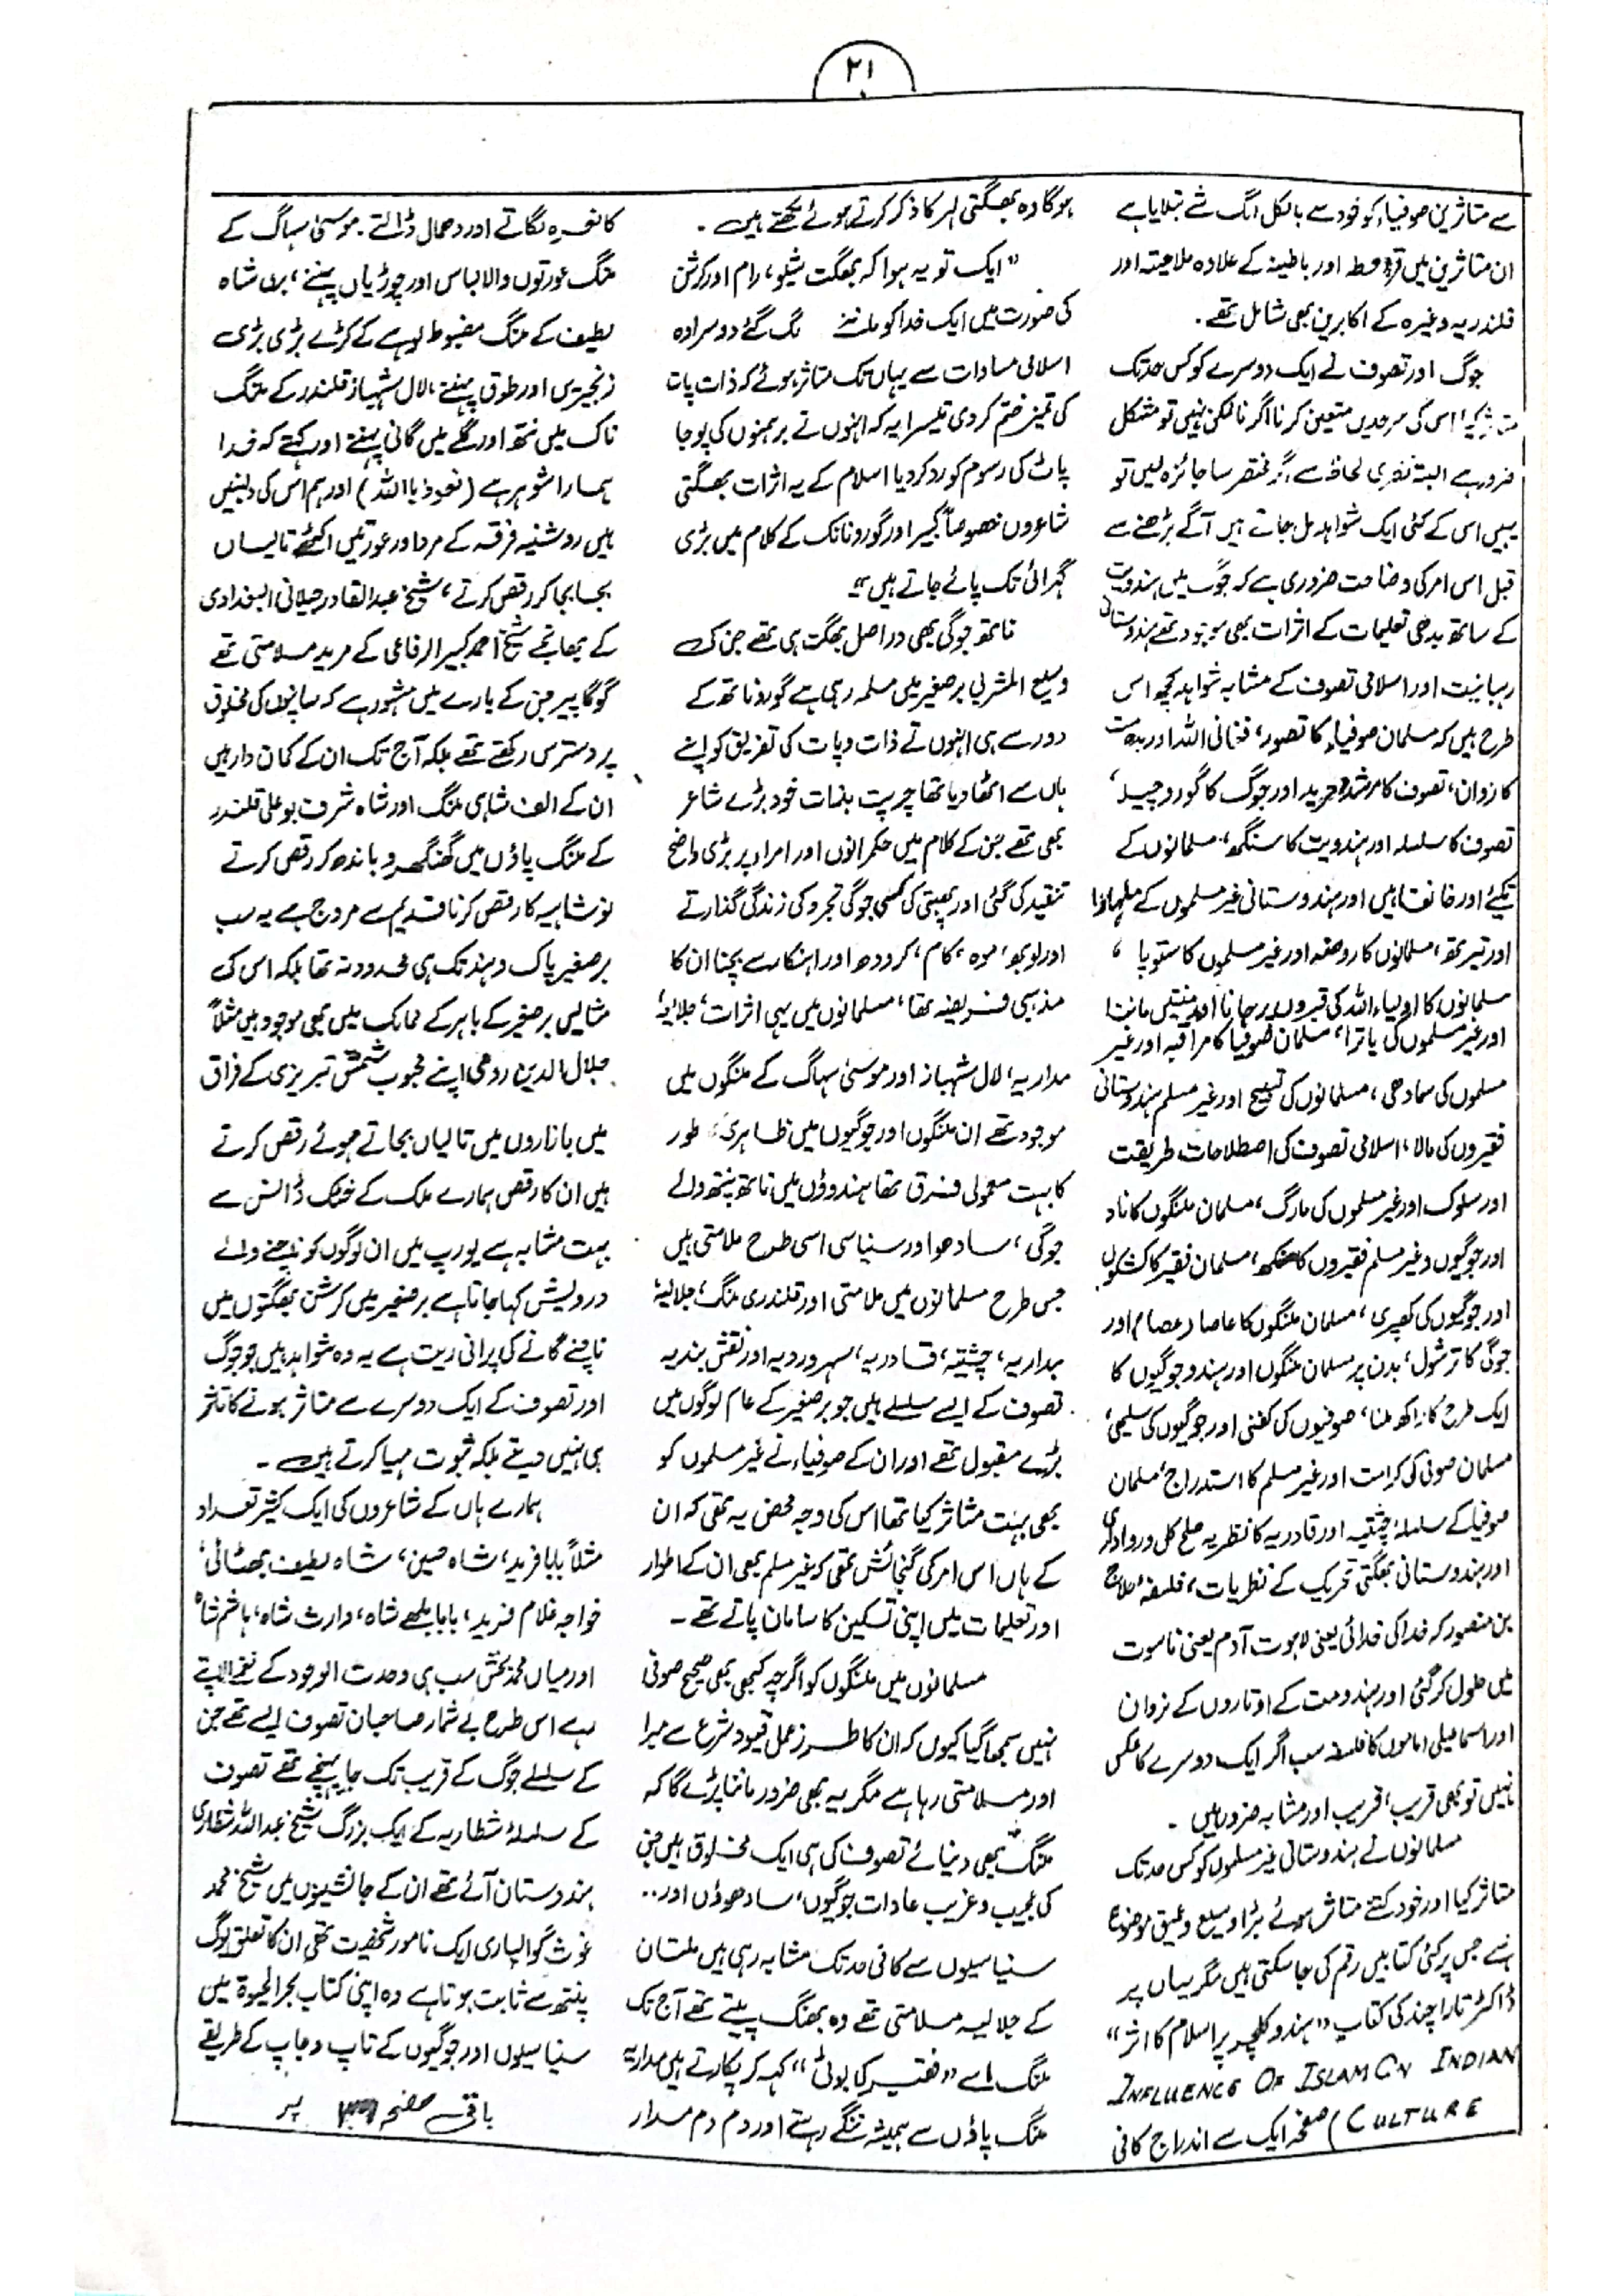 ۲۱
سے متاثرین صوفیاء کو خود سے بالکل الگ شے بتلایا ہے
ان متاثرین میں قرامطہ اور باطنیہ کے علاوہ ملامتیہ اور
قلندریہ وغیرہ کے اکابرین بھی شامل تھے۔
جوگ اور تصوف نے ایک دوسرے کو کس حد تک
متاثر کیا، اس کی سرحدیں متعین کرنا اگر ناممکن نہیں تو مشکل
ضرور ہے البتہ نظری لحاظ سے اگر مختصر سا جائزہ لیں تو
ہمیں اس کے کئی ایک شواہد مل جاتے ہیں آگے بڑھنے سے
قبل اس امر کی وضاحت ضروری ہے کہ جوگ میں ہندومت
کے ساتھ بدھی تعلیمات کے اثرات بھی موجود تھے ہندوستانی
رہبانیت اور اسلامی تصوف کے مشابہ شواہد کچھ اس
طرح ہیں کہ مسلمان صوفیاء کا تصور، فنافی اللہ اور بدھ مت
کا نروان، تصوف کا مرشد و مرید اور جوگ کا گورو چیلہ،
تصوف کا سلسلہ اور ہندویت کا سنگھ، مسلمانوں کے
تکیئے اور خانقاہیں اور ہندوستانی غیر مسلموں کے
اور تیرتھ، مسلمانوں کا روضہ اور غیر مسلموں کا ستوپا،
مسلمانوں کا اولیاء اللہ کی قبروں پر جانا اور منتیں ماننا
اور غیر مسلموں کی یاترا، مسلمان صوفیا کا مراقبہ اور غیر
مسلموں کی سمادھی، مسلمانوں کی تسبیح اور غیر مسلم ہندوستانی
فقیروں کی مالا، اسلامی تصوف کی اصطلاحات طریقت
اور سلوک اور غیر مسلموں کی مارگ، مسلمان ملنگوں کا ناد
اور جوگیوں و غیر مسلم فقیروں کا سنکھ، مسلمان فقیر کا کشکول
اور جوگیوں کی کھپری، مسلمان ملنگوں کا عاصا (عصا) اور
جوگی کا ترشول، بدن پر مسلمان ملنگوں اور ہندو جوگیوں کا
ایک طرح کا راکھ ملنا، صوفیوں کی کفنی اور جوگیوں کی سلیمی،
مسلمان صوفی کی کرامت اور غیر مسلم کا استدراج، مسلمان
صوفیا کے سلسلۂ چشتیہ اور قادریہ کا نظریہ صلح کل و رواداری
اور ہندوستانی بھگتی تحریک کے نظریات، فلسفۂ حلاج
بن منصور کہ خدا کی خدائی یعنی لاہوت آدم یعنی ناسوت
میں حلول کر گئی اور ہندومت کے اوتاروں کے نروان
اور اسماعیلی اماموں کا فلسفہ سب اگر ایک دوسرے کا عکس
نہیں تو بھی قریب، قریب اور مشابہ ضرور ہیں۔
مسلمانوں نے ہندوستانی غیر مسلموں کو کس حد تک
متاثر کیا اور خود کتنے متاثر ہوئے بڑا وسیع و عمیق موضوع
ہے جس پر کئی کتابیں رقم کی جا سکتی ہیں مگر یہاں پر
ڈاکٹر تارا چند کی کتاب "ہندو کلچر پر اسلام کا اثر"
INFLUENCE OF ISLAM ON INDIAN
CULTURE) صفحہ ایک سے اندراج کافی
ہو گا وہ بھگتی لہر کا ذکر کرتے ہوئے لکھتے ہیں۔
"ایک تو یہ ہوا کہ بھگت شِو، رام اور کرشن
کی صورت میں ایک خدا کو ماننے لگ گئے دوسرا وہ
اسلامی مساوات سے یہاں تک متاثر ہوئے کہ ذات پات
کی تمیز ختم کر دی تیسرا یہ کہ انہوں نے برہمنوں کی پوجا
پاٹ کی رسوم کو رد کر دیا اسلام کے یہ اثرات بھگتی
شاعروں خصوصاً کبیر اور گورو نانک کے کلام میں بڑی
گہرائی تک پائے جاتے ہیں"
ناتھ جوگی بھی دراصل بھگت ہی تھے جن کی
وسیع المشربی برصغیر میں مسلمہ رہی ہے گورو ناتھ کے
دور سے ہی انہوں نے ذات و پات کی تفریق کو اپنے
ہاں سے اٹھا دیا تھا چرپت بذات خود بڑے شاعر
بھی تھے جن کے کلام میں حکمرانوں اور امراء پر بڑی واضح
تنقید کی گئی اور پھبتی کسی جوگی تجرد کی زندگی گذارتے
اور لوبھ، موہ، کام، کرودھ اور اہنکار سے بچنا ان کا
مذہبی فریضہ تھا، مسلمانوں میں یہی اثرات، جلالیہ،
مداریہ، لال شہباز اور موسیٰ سہاگ کے ملنگوں میں
موجود تھے ان ملنگوں اور جوگیوں میں ظاہری طور
کا بہت معمولی فرق تھا ہندوؤں میں ناتھ پنتھ والے
جوگی، سادھو اور سنیاسی اسی طرح ملامتی ہیں
جس طرح مسلمانوں میں ملامتی اور قلندری ملنگ، جلالیہ،
مداریہ، چشتیہ، قادریہ، سہروردیہ اور نقش بندیہ
تصوف کے ایسے سلسلے ہیں جو برصغیر کے عام لوگوں میں
بڑے مقبول تھے اور ان کے صوفیاء نے غیر مسلموں کو
بھی بہت متاثر کیا تھا اس کی وجہ محض یہ تھی کہ ان
کے ہاں اس امر کی گنجائش تھی کہ غیر مسلم بھی ان کے اطوار
اور تعلیمات میں اپنی تسکین کا سامان پاتے تھے۔
مسلمانوں میں ملنگوں کو اگرچہ کبھی بھی صحیح صوفی
نہیں سمجھا گیا کیوں کہ ان کا طرز عمل قیود شرع سے مبرا
اور ملامتی رہا ہے مگر یہ بھی ضرور ماننا پڑے گا کہ
ملنگ بھی دنیائے تصوف کی ہی ایک مخلوق ہیں جن
کی عجیب و غریب عادات جوگیوں، سادھوؤں اور..
سنیاسیوں سے کافی حد تک مشابہ رہی ہیں ملتان
کے جلالیہ ملامتی تھے وہ بھنگ پیتے تھے آج تک
ملنگ اسے "فقیر کا بوٹی" کہہ کر پکارتے ہیں مداریہ
ملنگ پاؤں سے ہمیشہ ننگے رہتے اور دم دم مدار
کا نعرہ لگاتے اور دھمال ڈالتے۔ موسیٰ سہاگ کے
ملنگ عورتوں والا لباس اور چوڑیاں پہنتے، بری شاہ
لطیف کے ملنگ مضبوط لوہے کے کڑے بڑی بڑی
زنجیریں اور طوق پہنتے، لال شہباز قلندر کے ملنگ
ناک میں نتھ اور گلے میں گانی پہنتے اور کہتے کہ خدا
ہمارا شوہر ہے (نعوذ باللہ) اور ہم اس کی دلہنیں
ہیں روشنیہ فرقہ کے مرد اور عورتیں اکٹھے تالیاں
بجا بجا کر رقص کرتے، شیخ عبدالقادر جیلانی البغدادی
کے بھانجے شیخ احمد کبیر الرفاعی کے مرید ملامتی تھے
گوگا پیر جن کے بارے میں مشہور ہے کہ سانپوں کی مخلوق
پر دسترس رکھتے تھے بلکہ آج تک ان کے کمان دار ہیں
ان کے الف شاہی ملنگ اور شاہ شرف بو علی قلندر
کے ملنگ پاؤں میں گھنگھرو باندھ کر رقص کرتے
نوشاہیہ کا رقص کرنا قدیم سے مروج ہے یہ سب
برصغیر پاک و ہند تک ہی محدود نہ تھا بلکہ اس کی
مثالیں برصغیر کے باہر کے ممالک میں بھی موجود ہیں مثلاً
جلال الدین رومی اپنے محبوب شمس تبریزی کے فراق
میں بازاروں میں تالیاں بجاتے ہوئے رقص کرتے
ہیں ان کا رقص ہمارے ملک کے خٹک ڈانس سے
بہت مشابہ ہے یورپ میں ان لوگوں کو ناچنے والے
درویش کہا جاتا ہے برصغیر میں کرشن بھگتوں میں
ناچنے گانے کی پرانی ریت ہے یہ وہ شواہد ہیں جو جوگ
اور تصوف کے ایک دوسرے سے متاثر ہونے کا تاثر
ہی نہیں دیتے بلکہ ثبوت مہیا کرتے ہیں۔
ہمارے ہاں کے شاعروں کی ایک کثیر تعداد
مثلاً بابا فرید، شاہ حسین، شاہ لطیف بھٹائی،
خواجہ غلام فرید، بابا بلھے شاہ، وارث شاہ، ہاشم شاہ
اور میاں محمد بخش سب ہی وحدت الوجود کے نغمے الاپتے
رہے اس طرح بے شمار صاحبان تصوف ایسے تھے جن
کے سلسلے جوگ کے قریب تک جا پہنچے تھے تصوف
کے سلسلۂ شطاریہ کے ایک بزرگ شیخ عبداللہ شطاری
ہندوستان آئے تھے ان کے جانشینوں میں شیخ محمد
غوث گوالیاری ایک نامور شخصیت تھی ان کا تعلق جوگ
پنتھ سے ثابت ہوتا ہے وہ اپنی کتاب بحر الحیوٰۃ میں
سنیاسیوں اور جوگیوں کے تاپ و جاپ کے طریقے
باقی صفحہ پر